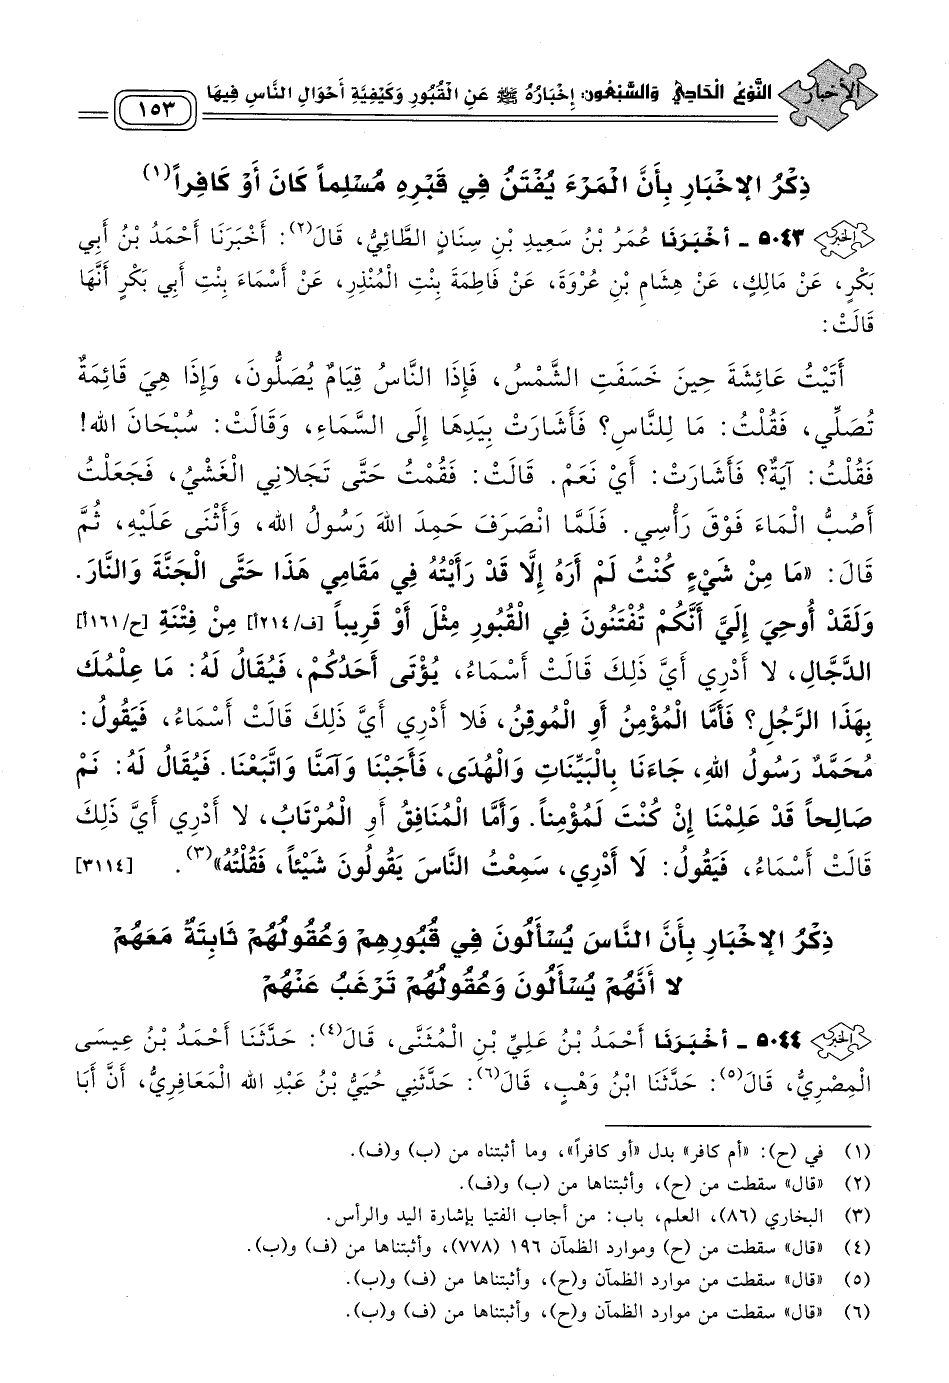 الأخبار
النَّوْعُ الْحَادِي وَالسَّبْعُونَ: إِخْبَارُهُ ﷺ عَنِ الْقُبُورِ وَكَيْفِيَّةِ أَحْوَالِ النَّاسِ فِيهَا
١٥٣
ذِكْرُ الإِخْبَارِ بِأَنَّ الْمَرْءَ يُفْتَنُ فِي قَبْرِهِ مُسْلِماً كَانَ أَوْ كَافِراً(١)
٥٠٤٣ ـ أَخْبَرَنَا عُمَرُ بْنُ سَعِيدِ بْنِ سِنَانٍ الطَّائِيُّ، قَالَ(٢): أَخْبَرَنَا أَحْمَدُ بْنُ أَبِي
بَكْرٍ، عَنْ مَالِكٍ، عَنْ هِشَامِ بْنِ عُرْوَةَ، عَنْ فَاطِمَةَ بِنْتِ الْمُنْذِرِ، عَنْ أَسْمَاءَ بِنْتِ أَبِي بَكْرٍ أَنَّهَا
قَالَتْ:
أَتَيْتُ عَائِشَةَ حِينَ خَسَفَتِ الشَّمْسُ، فَإِذَا النَّاسُ قِيَامٌ يُصَلُّونَ، وَإِذَا هِيَ قَائِمَةٌ
تُصَلِّي، فَقُلْتُ: مَا لِلنَّاسِ؟ فَأَشَارَتْ بِيَدِهَا إِلَى السَّمَاءِ، وَقَالَتْ: سُبْحَانَ اللهِ!
فَقُلْتُ: آيَةٌ؟ فَأَشَارَتْ: أَيْ نَعَمْ. قَالَتْ: فَقُمْتُ حَتَّى تَجَلانِي الْغَشْيُ، فَجَعَلْتُ
أَصُبُّ الْمَاءَ فَوْقَ رَأْسِي. فَلَمَّا انْصَرَفَ حَمِدَ اللهَ رَسُولُ اللهِ، وَأَثْنَى عَلَيْهِ، ثُمَّ
قَالَ: «مَا مِنْ شَيْءٍ كُنْتُ لَمْ أَرَهُ إِلَّا قَدْ رَأَيْتُهُ فِي مَقَامِي هَذَا حَتَّى الْجَنَّةَ وَالنَّارَ.
وَلَقَدْ أُوحِيَ إِلَيَّ أَنَّكُمْ تُفْتَنُونَ فِي الْقُبُورِ مِثْلَ أَوْ قَرِيباً [ف/٢١٤أ] مِنْ فِتْنَةِ [ح/١٦١أ]
الدَّجَّالِ، لا أَدْرِي أَيَّ ذَلِكَ قَالَتْ أَسْمَاءُ، يُؤْتَى أَحَدُكُمْ، فَيُقَالُ لَهُ: مَا عِلْمُكَ
بِهَذَا الرَّجُلِ؟ فَأَمَّا الْمُؤْمِنُ أَوِ الْمُوقِنُ، فَلا أَدْرِي أَيَّ ذَلِكَ قَالَتْ أَسْمَاءُ، فَيَقُولُ:
مُحَمَّدٌ رَسُولُ اللهِ، جَاءَنَا بِالْبَيِّنَاتِ وَالْهُدَى، فَأَجَبْنَا وَآمَنَّا وَاتَّبَعْنَا. فَيُقَالُ لَهُ: نَمْ
صَالِحاً قَدْ عَلِمْنَا إِنْ كُنْتَ لَمُؤْمِناً. وَأَمَّا الْمُنَافِقُ أَوِ الْمُرْتَابُ، لا أَدْرِي أَيَّ ذَلِكَ
قَالَتْ أَسْمَاءُ، فَيَقُولُ: لَا أَدْرِي، سَمِعْتُ النَّاسَ يَقُولُونَ شَيْئاً، فَقُلْتُهُ»(٣). [٣١١٤]
ذِكْرُ الإِخْبَارِ بِأَنَّ النَّاسَ يُسْأَلُونَ فِي قُبُورِهِمْ وَعُقُولُهُمْ ثَابِتَةٌ مَعَهُمْ
لا أَنَّهُمْ يُسْأَلُونَ وَعُقُولُهُمْ تَرْغَبُ عَنْهُمْ
٥٠٤٤ ـ أَخْبَرَنَا أَحْمَدُ بْنُ عَلِيِّ بْنِ الْمُثَنَّى، قَالَ(٤): حَدَّثَنَا أَحْمَدُ بْنُ عِيسَى
الْمِصْرِيُّ، قَالَ(٥): حَدَّثَنَا ابْنُ وَهْبٍ، قَالَ(٦): حَدَّثَنِي حُيَيُّ بْنُ عَبْدِ اللهِ الْمَعَافِرِيُّ، أَنَّ أَبَا
(١) في (ح): «أم كافر» بدل «أو كافراً»، وما أثبتناه من (ب) و(ف).
(٢) «قال» سقطت من (ح)، وأثبتناها من (ب) و(ف).
(٣) البخاري (٨٦)، العلم، باب: من أجاب الفتيا بإشارة اليد والرأس.
(٤) «قال» سقطت من (ح) وموارد الظمآن ١٩٦ (٧٧٨)، وأثبتناها من (ف) و(ب).
(٥) «قال» سقطت من موارد الظمآن و(ح)، وأثبتناها من (ف) و(ب).
(٦) «قال» سقطت من موارد الظمآن و(ح)، وأثبتناها من (ف) و(ب).